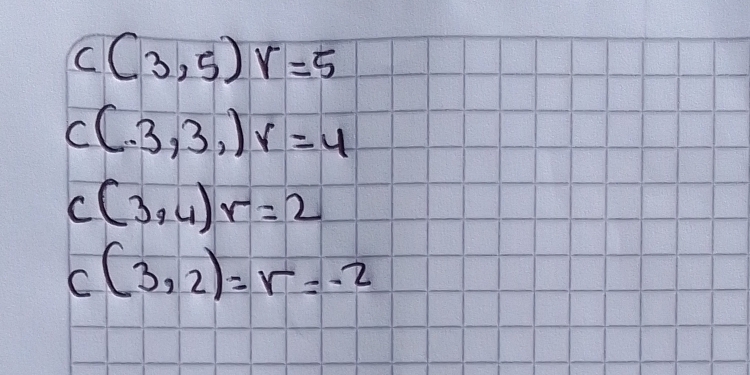 c(3,5) r=5
c(-3,3,) r=4
c(3,4) r=2
c(3,2)=r=-2